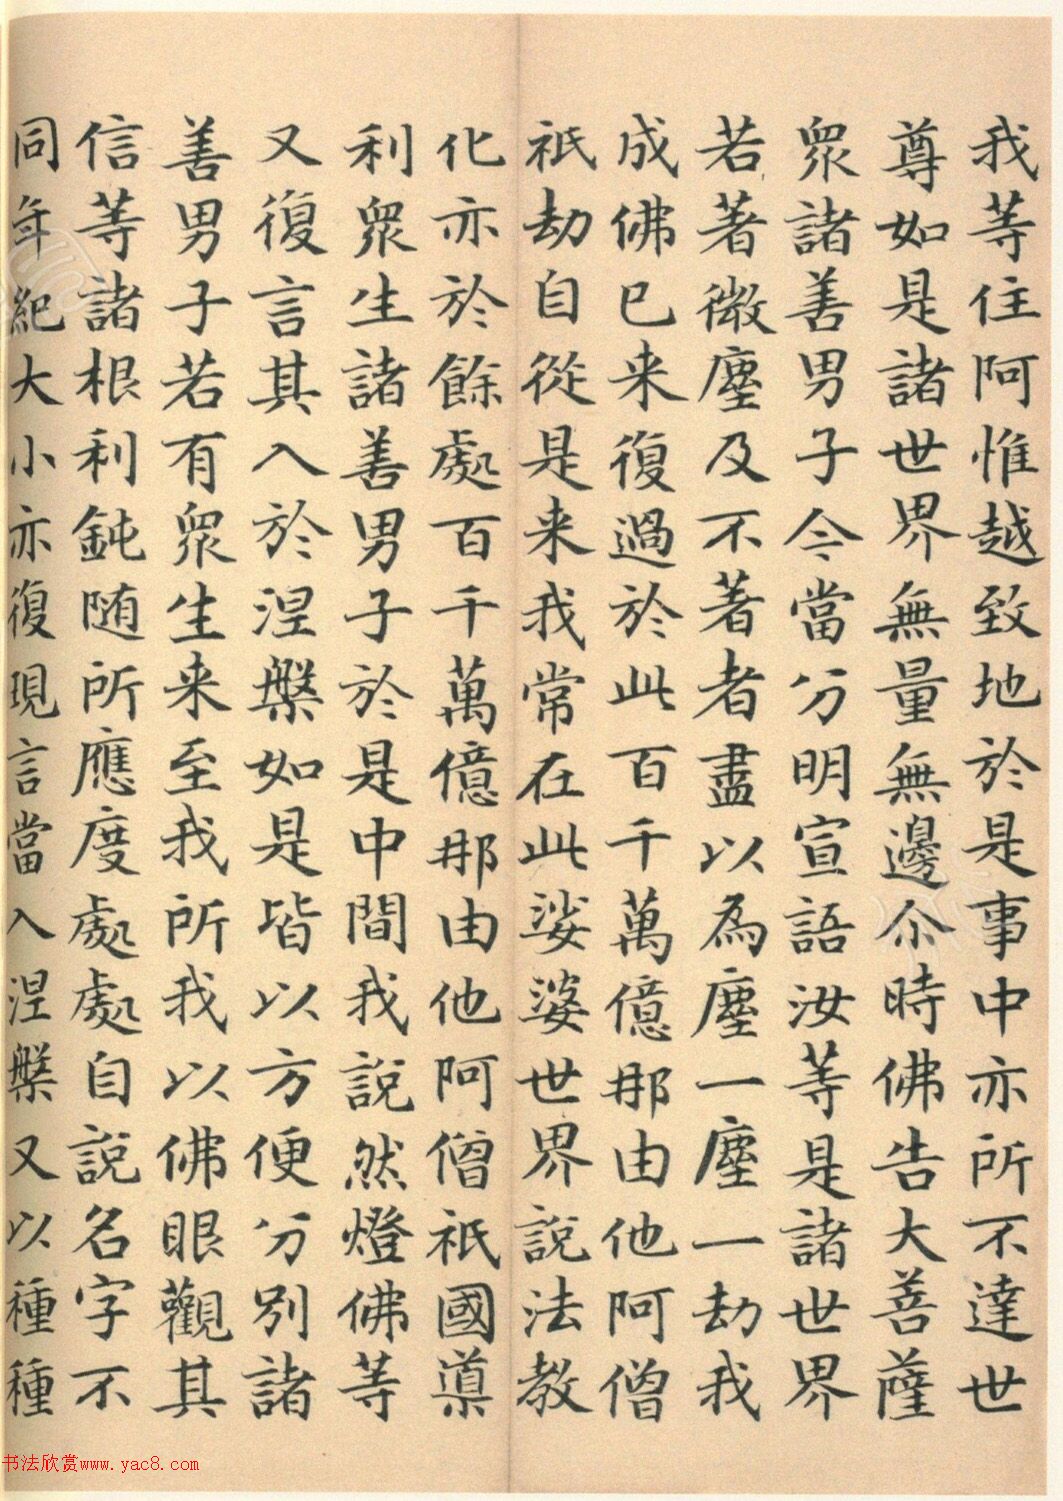 我等住阿惟越致地於是事中亦所不達世
尊如是諸世界無量無邊尒時佛告大菩薩
眾諸善男子今當分明宣語汝等是諸世界
若著微塵及不著者盡以為塵一塵一劫我
成佛已来復過於此百千萬億那由他阿僧
祇劫自從是来我常在此娑婆世界說法教
化亦於餘處百千萬億那由他阿僧祇國導
利眾生諸善男子於是中間我說然燈佛等
又復言其入於涅槃如是皆以方便分別諸
善男子若有眾生来至我所我以佛眼觀其
信等諸根利鈍随所應度處處自說名字不
同年紀大小亦復現言當入涅槃又以種種
书法欣赏www.yac8.com